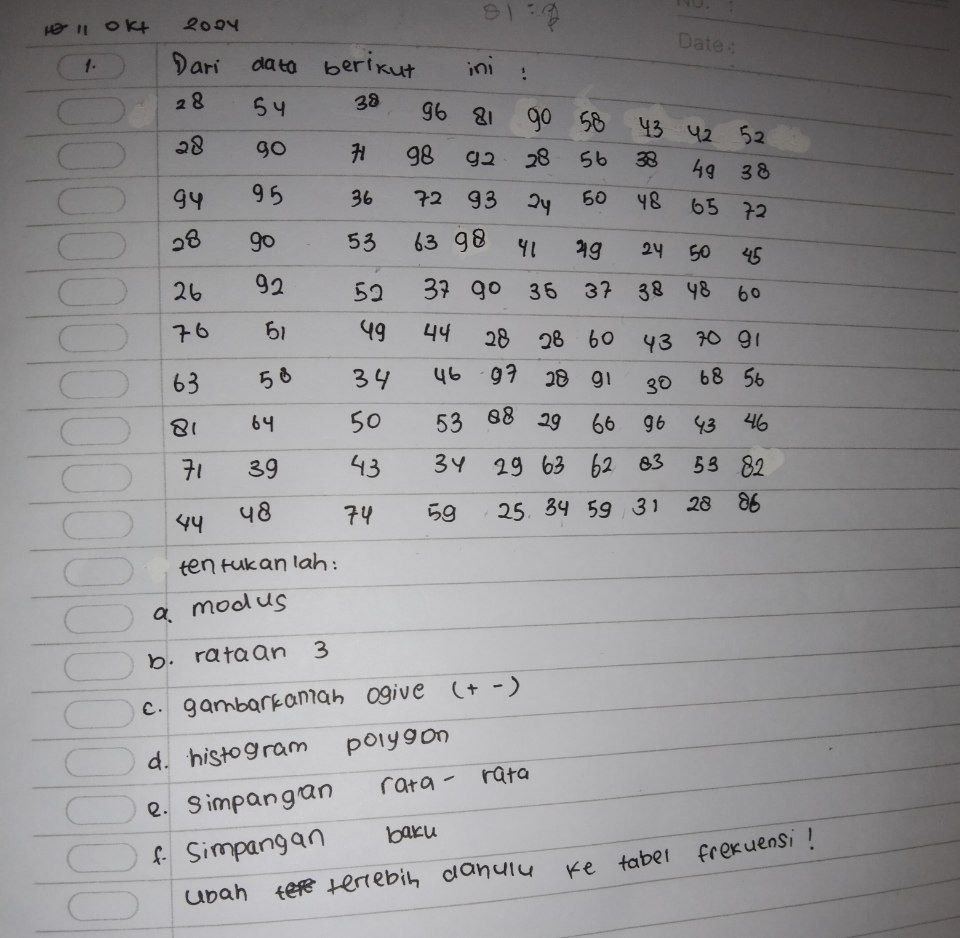 11 Okt 2024
No. :
Date :
1. Dari data berikut ini :
28 54 38 96 81 90 58 43 42 52
28 90 71 98 92 28 56 38 49 38
94 95 36 72 93 24 50 48 65 72
28 90 53 63 98 41 49 24 50 45
26 92 52 37 90 35 37 38 48 60
76 51 49 44 28 28 60 43 70 91
63 58 34 46 97 28 91 30 68 56
81 64 50 53 88 29 66 96 43 46
71 39 43 34 29 63 62 83 53 82
44 48 74 59 25 34 59 31 28 86
tentukanlah :
a. modus
b. rataan 3
c. gambarkanlah ogive (+ -)
d. histogram polygon
e. Simpangan rata - rata
f. Simpangan baku
Ubah terlebih dahulu ke tabel frekuensi !